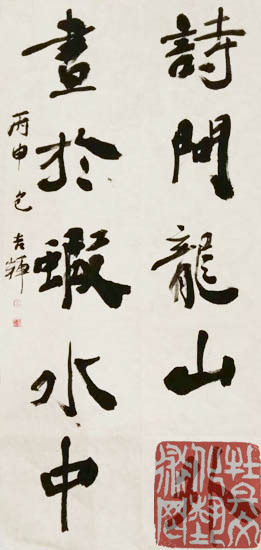 詩問龍山
畫於蝦水中
丙申 吉輝